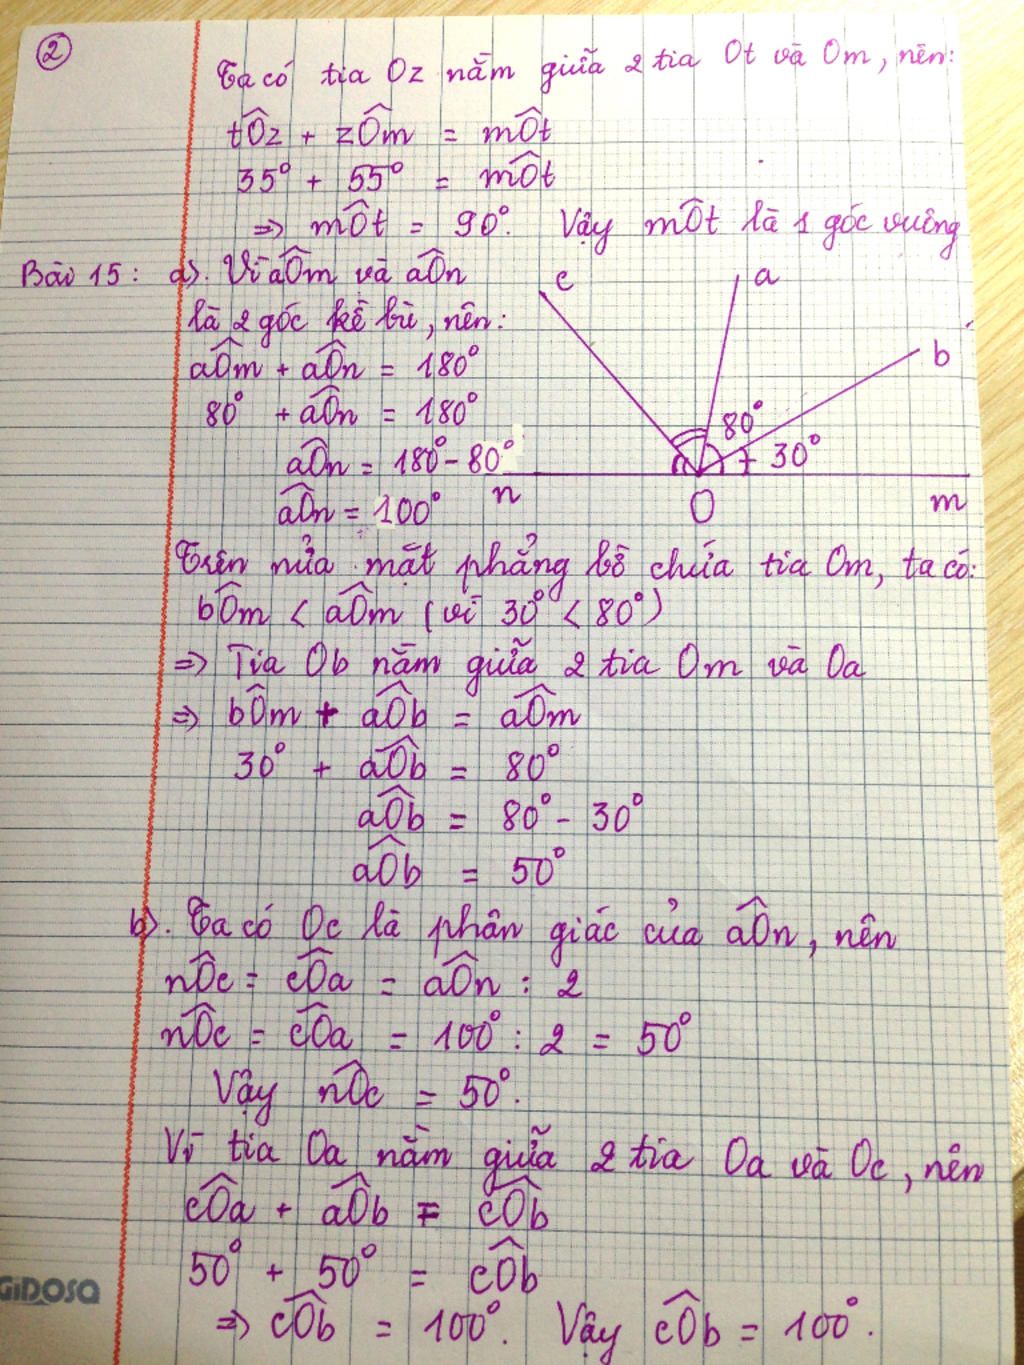 ②
Ta có tia Oz nằm giữa 2 tia Ot và Om, nên:
tÔz + zÔm = mÔt
35° + 55° = mÔt
=> mÔt = 90°. Vậy mÔt là 1 góc vuông
Bài 15: a). Vì aÔm và aÔn
là 2 góc kề bù, nên:
aÔm + aÔn = 180°
80° + aÔn = 180°
aÔn = 180° - 80°
aÔn = 100°
c
a
b
80°
30°
n
O
m
Trên nửa mặt phẳng bờ chứa tia Om, ta có:
bÔm < aÔm (vì 30° < 80°)
=> Tia Ob nằm giữa 2 tia Om và Oa
=> bÔm + aÔb = aÔm
30° + aÔb = 80°
aÔb = 80° - 30°
aÔb = 50°
b). Ta có Oc là phân giác của aÔn, nên
nÔc = cÔa = aÔn : 2
nÔc = cÔa = 100° : 2 = 50°
Vậy nÔc = 50°.
Vì tia Oa nằm giữa 2 tia Oa và Oc, nên
cÔa + aÔb = cÔb
50° + 50° = cÔb
GiDOSA
=> cÔb = 100°. Vậy cÔb = 100°.